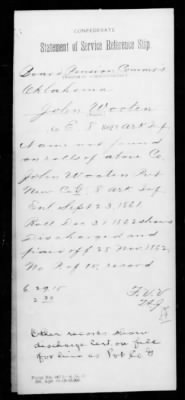 CONFEDERATE
Statement of Service Reference Slip
Board Pension Commrs
Oklahoma
John Wooten
Co E. 8 Ark Inf
Name not found
on rolls of above Co.
John Wooten Pvt
New Co G 8 Ark Inf
Enl Sept 23, 1861
Roll Dec 31 1862 shows
Discharged and
paid off 25 Nov 1862,
No later record
6.29.15
230
Other records show
discharge cert. on file
for him as Pvt Co G